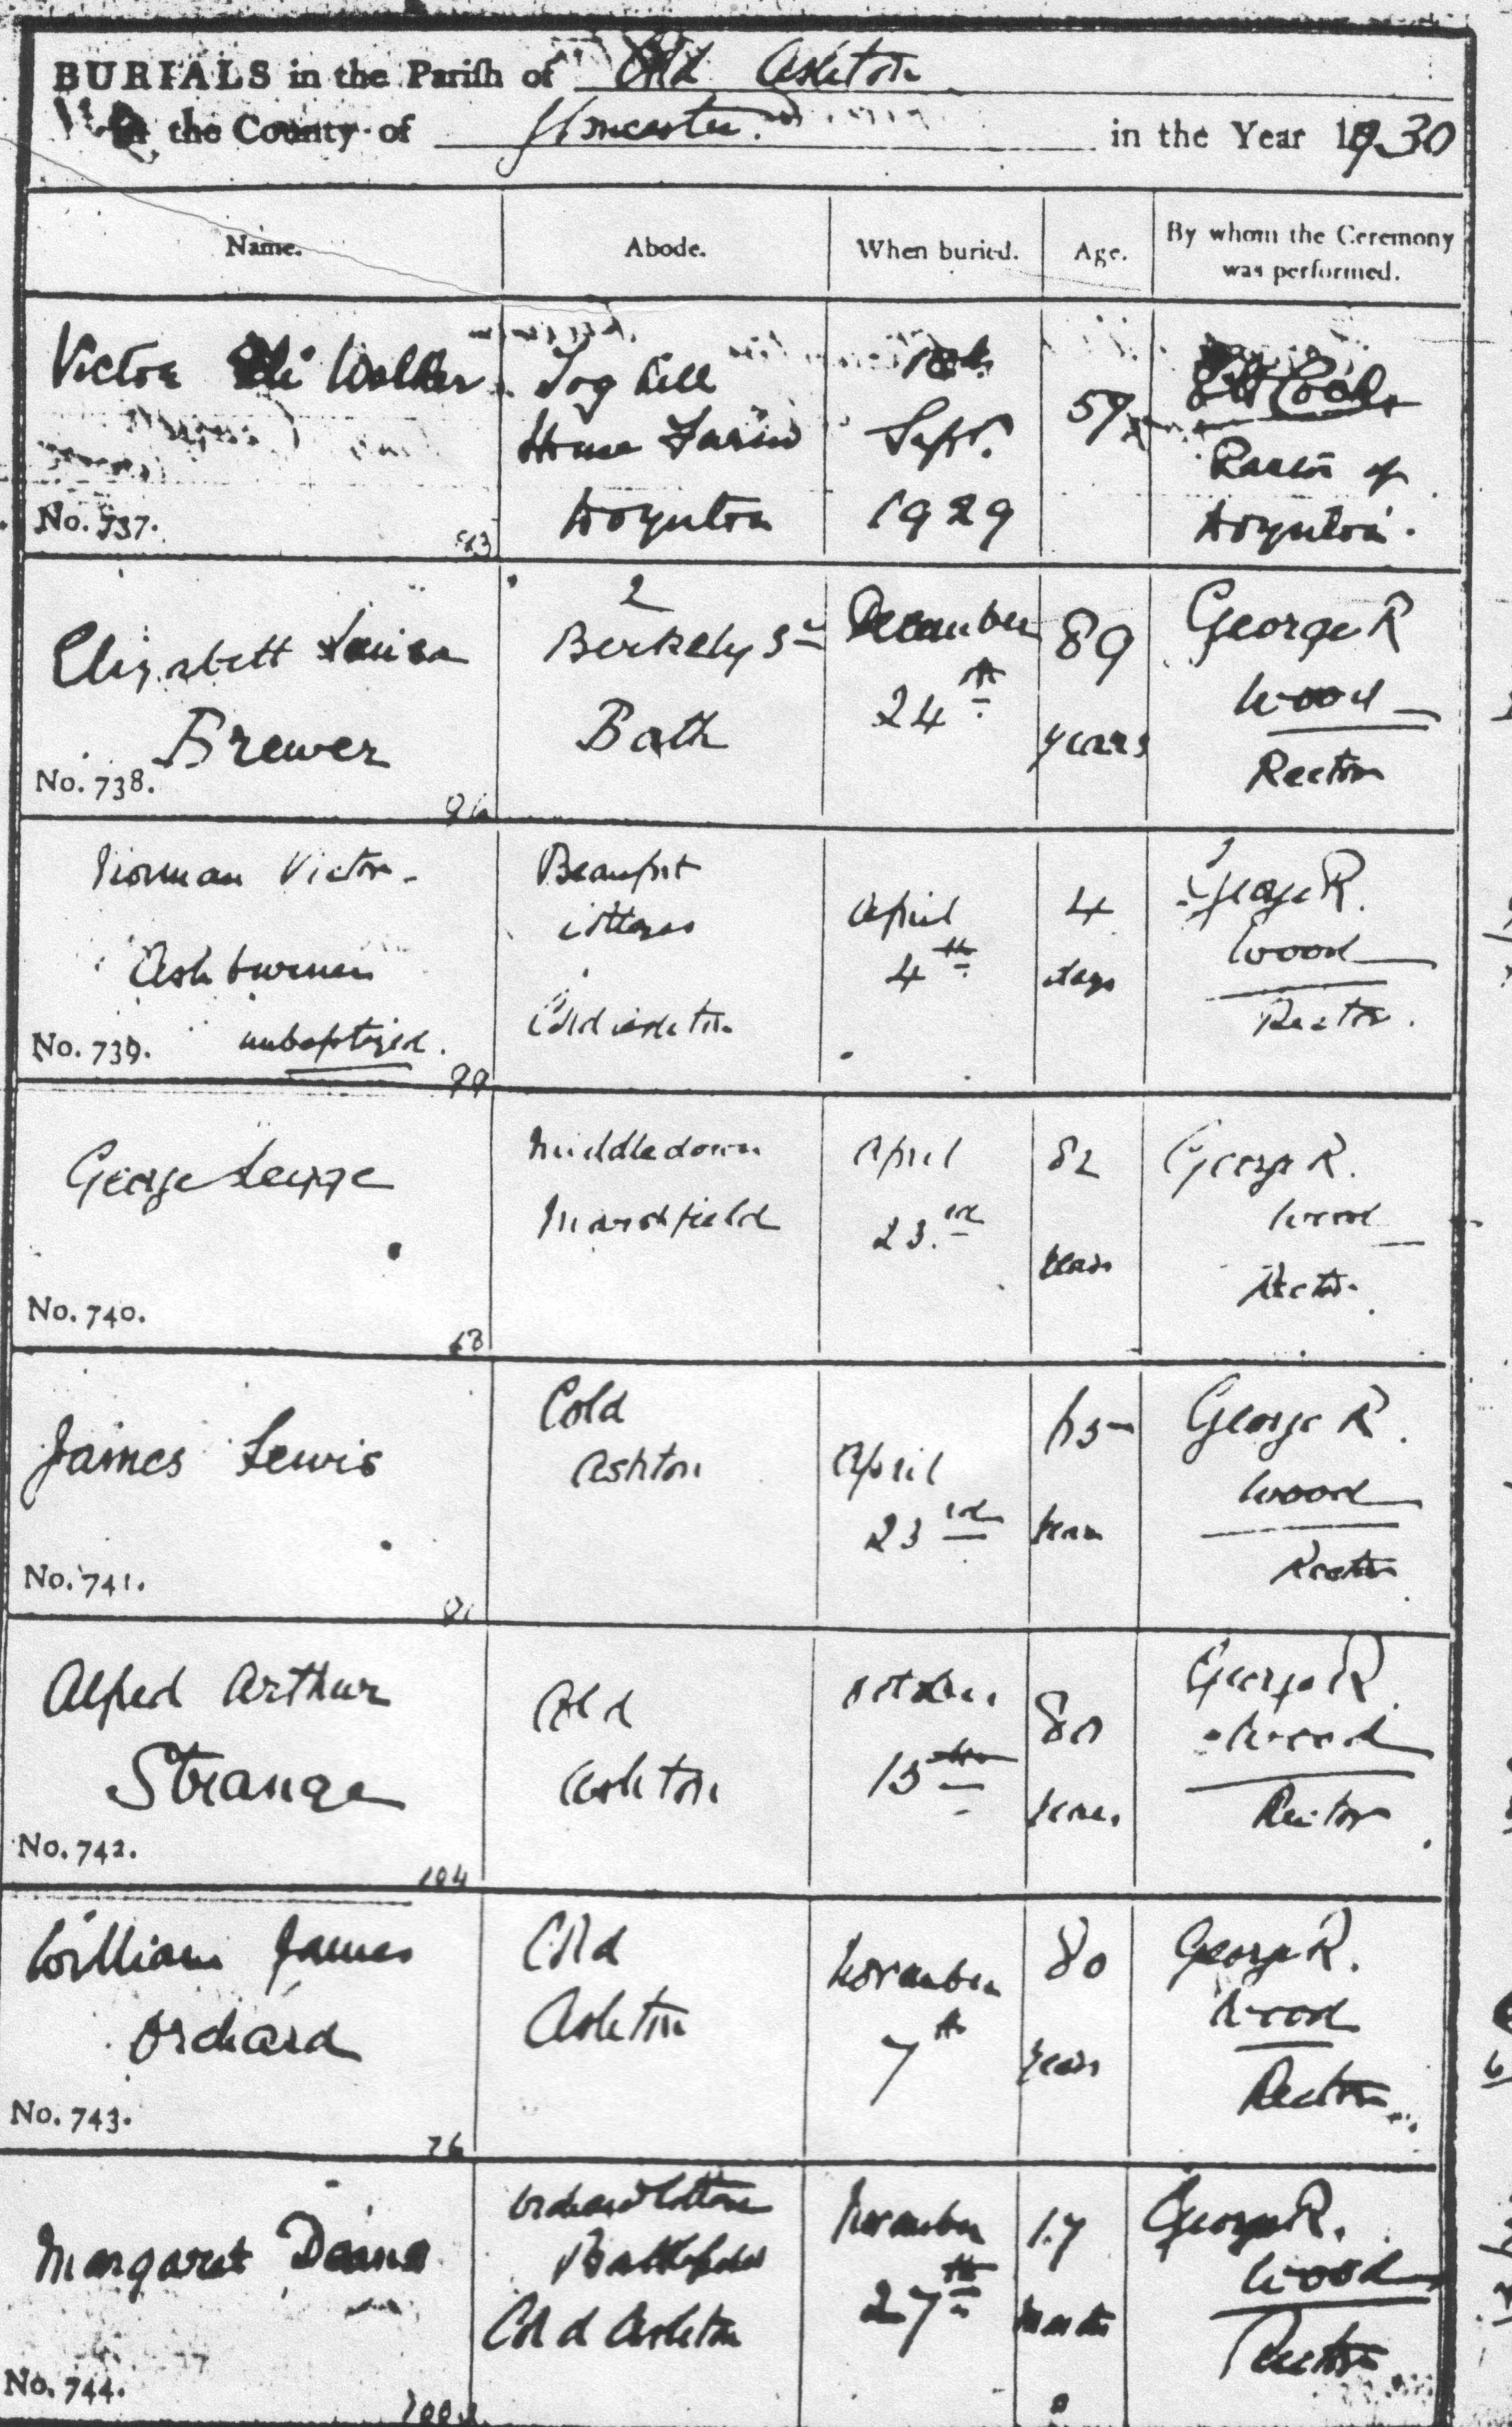 BURIALS in the Parish of Cold Ashton
the County of Gloucester in the Year 1930
Name. Abode. When buried. Age. By whom the Ceremony was performed.
Victor Eli Walker
Tog hill
House Farm
Doynton
Sept.
1929
59
Rector of
Doynton.
No. 737.
Elizabeth Louisa
Brewer
2
Berkely St
Bath
December
24th
89
years
George R
Wood
Rector
No. 738.
Norman Victor
Ashburner
unbaptized.
Beaufort
Cottages
Cold Ashton
April
4th
4
days
George R.
Wood
Rector.
No. 739.
99
George
Middledown
Marshfield
April
23rd
82
years
George R.
Wood
Rector.
No. 740.
68
James Lewis
Cold
Ashton
April
23rd
years
George R.
Wood
Rector
No. 741.
Alfred Arthur
Strange
Cold
Ashton
October
15th
80
years
George R.
Wood
Rector
No. 742.
104
William James
Orchard
Cold
Ashton
November
7th
80
years
George R.
Wood
Rector
No. 743.
76
Margaret
Orchard Cottage
Cold Ashton
November
27th
17
months
George R.
Wood
Rector
No. 744.